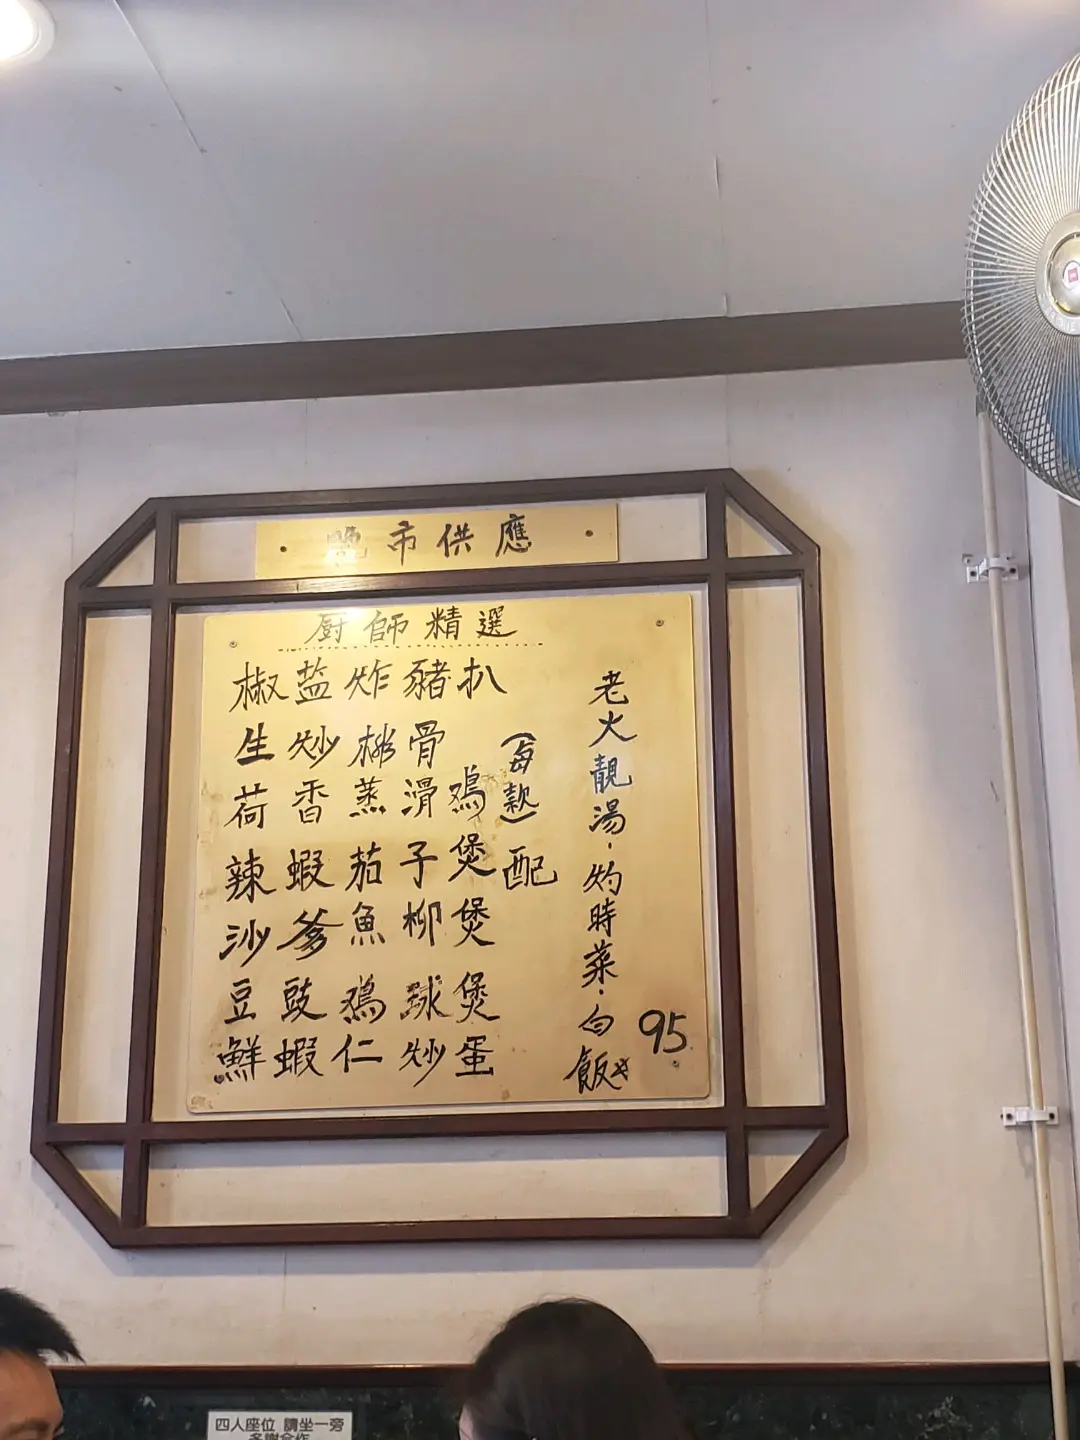 晚市供應
厨師精選
椒盐炸豬扒
生炒排骨
荷香蒸滑鷄
辣蝦茄子煲
沙爹魚柳煲
豆豉鷄球煲
鮮蝦仁炒蛋
(每款)配
老火靚湯·灼時菜·白飯
95
四人座位 請坐一旁
多謝合作